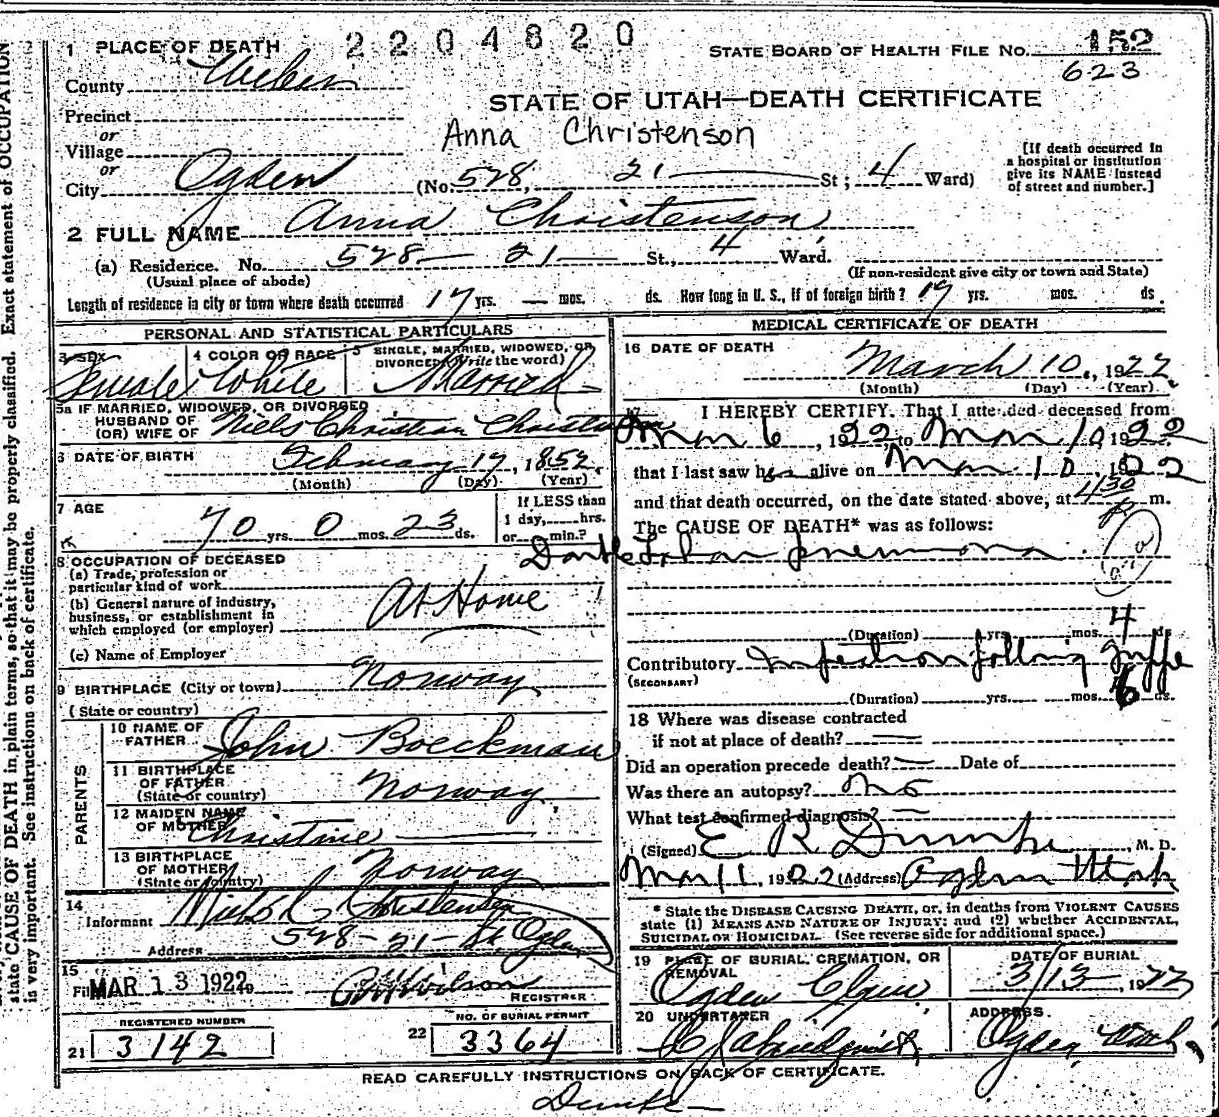 2204820
1 PLACE OF DEATH
STATE BOARD OF HEALTH FILE NO. 152
623
County Weber
STATE OF UTAH—DEATH CERTIFICATE
Precinct
or
Village
Anna Christenson
[If death occurred in
a hospital or institution
give its NAME instead
of street and number.]
or
City Ogden (No. 528, 21 St; 4 Ward)
2 FULL NAME Anna Christenson
(a) Residence. No. 528— 21— St., 4 Ward.
(Usual place of abode)
(If non-resident give city or town and State)
Length of residence in city or town where death occurred 17 yrs. — mos. ds. How long in U. S., if of foreign birth? 19 yrs. mos. ds.
PERSONAL AND STATISTICAL PARTICULARS
3 SEX Female
4 COLOR OR RACE White
5 SINGLE, MARRIED, WIDOWED, OR
DIVORCED (Write the word)
Married
5a IF MARRIED, WIDOWED, OR DIVORCED
HUSBAND OF
(OR) WIFE OF Niels Christian Christenson
6 DATE OF BIRTH February 17, 1852
(Month) (Day) (Year)
7 AGE 70 yrs. 0 mos. 23 ds.
If LESS than
1 day, hrs.
or min.?
8 OCCUPATION OF DECEASED
(a) Trade, profession or
particular kind of work
(b) General nature of industry,
business, or establishment in
which employed (or employer)
At Home
(c) Name of Employer
9 BIRTHPLACE (City or town) Norway
(State or country)
PARENTS
10 NAME OF
FATHER John Boeckman
11 BIRTHPLACE
OF FATHER
(State or country) Norway
12 MAIDEN NAME
OF MOTHER Christine
13 BIRTHPLACE
OF MOTHER
(State or country) Norway
14
Informant Niels C Christensen
Address 528-21-St. Ogden
15
Filed MAR 13 1922
Wilson
REGISTRAR
REGISTERED NUMBER
21 3142
NO. OF BURIAL PERMIT
22 3364
MEDICAL CERTIFICATE OF DEATH
16 DATE OF DEATH
March 10, 1922
(Month) (Day) (Year)
17 I HEREBY CERTIFY. That I attended deceased from
Mar 6, 1922 to Mar 10 1922
that I last saw her alive on Mar 10, 1922
and that death occurred, on the date stated above, at 4 30 P m.
The CAUSE OF DEATH* was as follows:
Double Lobar pneumona
(Duration) yrs. mos. 4 ds
Contributory Infection
(SECONDARY)
(Duration) yrs. mos. 6 ds.
18 Where was disease contracted
if not at place of death?
Did an operation precede death? — Date of
Was there an autopsy? No
What test confirmed diagnosis? —
(Signed) E R Dumke, M. D.
Mar 11, 1922 (Address) Ogden Utah
* State the DISEASE CAUSING DEATH, or, in deaths from VIOLENT CAUSES
state (1) MEANS AND NATURE OF INJURY; and (2) whether ACCIDENTAL,
SUICIDAL OR HOMICIDAL. (See reverse side for additional space.)
19 PLACE OF BURIAL, CREMATION, OR
REMOVAL
Ogden
DATE OF BURIAL
3/13, 1922
20 UNDERTAKER
ADDRESS.
Ogden Utah
READ CAREFULLY INSTRUCTIONS ON BACK OF CERTIFICATE.
Dumke
state CAUSE OF DEATH in plain terms, so that it may be properly classified. Exact statement of OCCUPATION
is very important. See instructions on back of certificate.